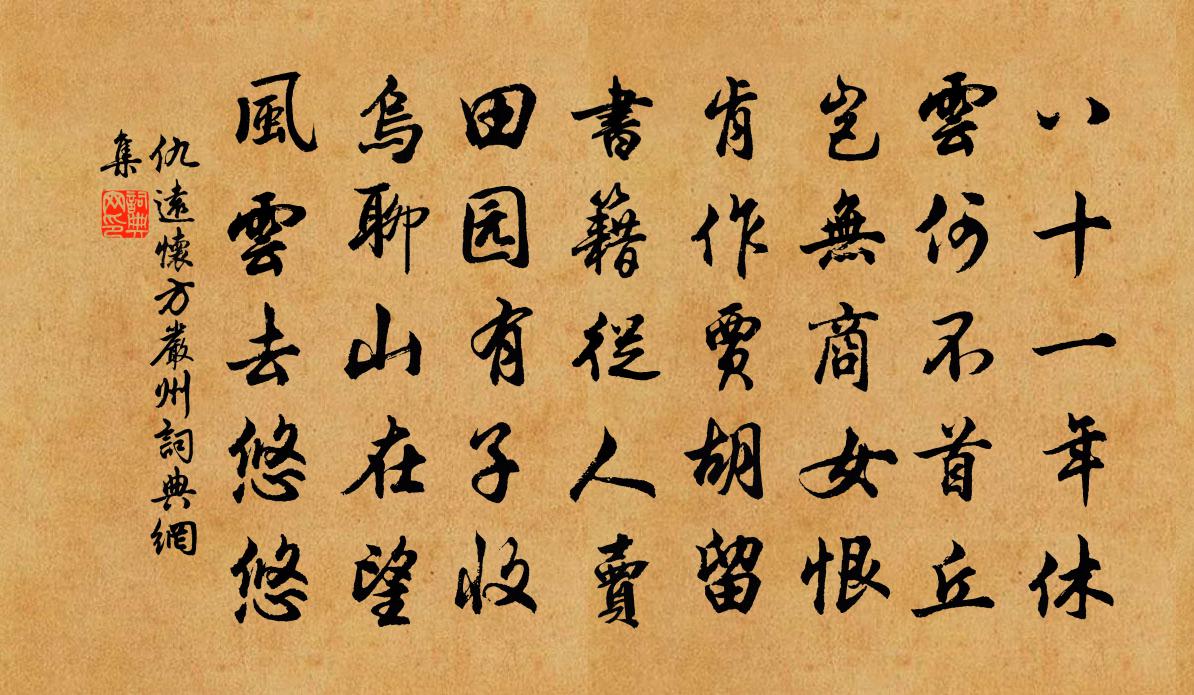 八十一年休
雲何不首丘
豈無商女恨
肯作賈胡留
書籍從人賣
田园有子收
烏聊山在望
風雲去悠悠
仇遠懷方嚴州詞典網
集
詞典
网印